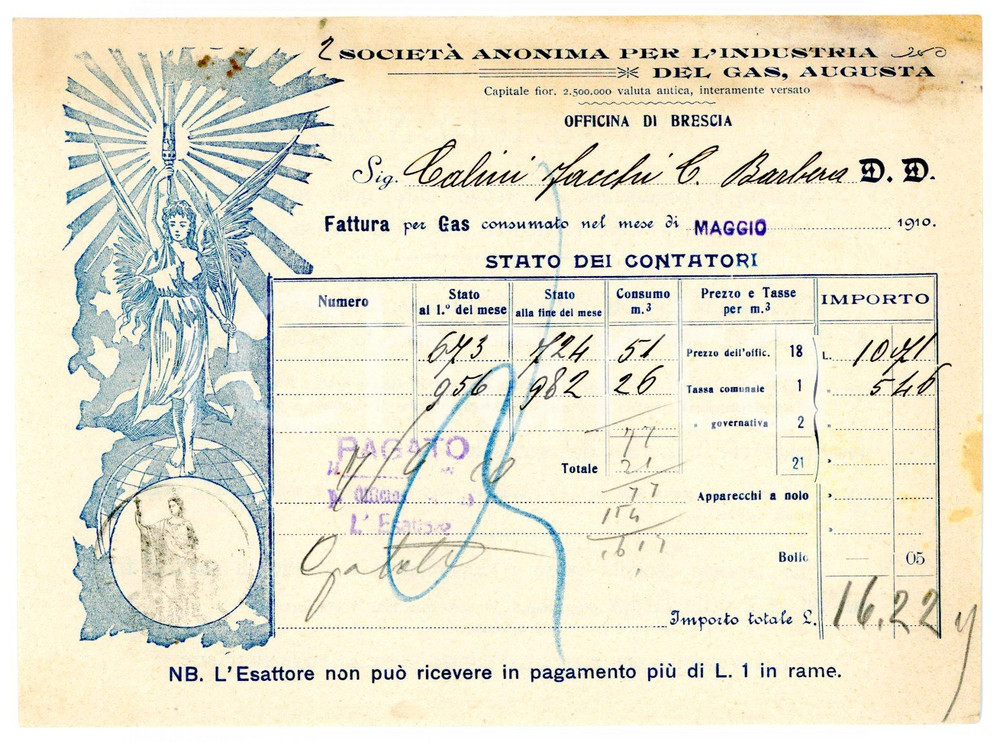 2 SOCIETÀ ANONIMA PER L'INDUSTRIA
DEL GAS, AUGUSTA
Capitale fior. 2.500.000 valuta antica, interamente versato
OFFICINA DI BRESCIA
Sig. Calini Facchi C. Barbera D. D.
Fattura per Gas consumato nel mese di MAGGIO 1910.
STATO DEI CONTATORI
Numero Stato al 1.° del mese Stato alla fine del mese Consumo m.3 Prezzo e Tasse per m.3 IMPORTO
673 724 51 Prezzo dell'offic. 18 L. 10 71
956 982 26 Tassa comunale 1 " 5 46
" governativa 2 "
77
PAGATO
Totale 21 21 "
77 Apparecchi a nolo "
L'Esattore
154
16 17
Bollo — 05
Importo totale L. 16.22
NB. L'Esattore non può ricevere in pagamento più di L. 1 in rame.